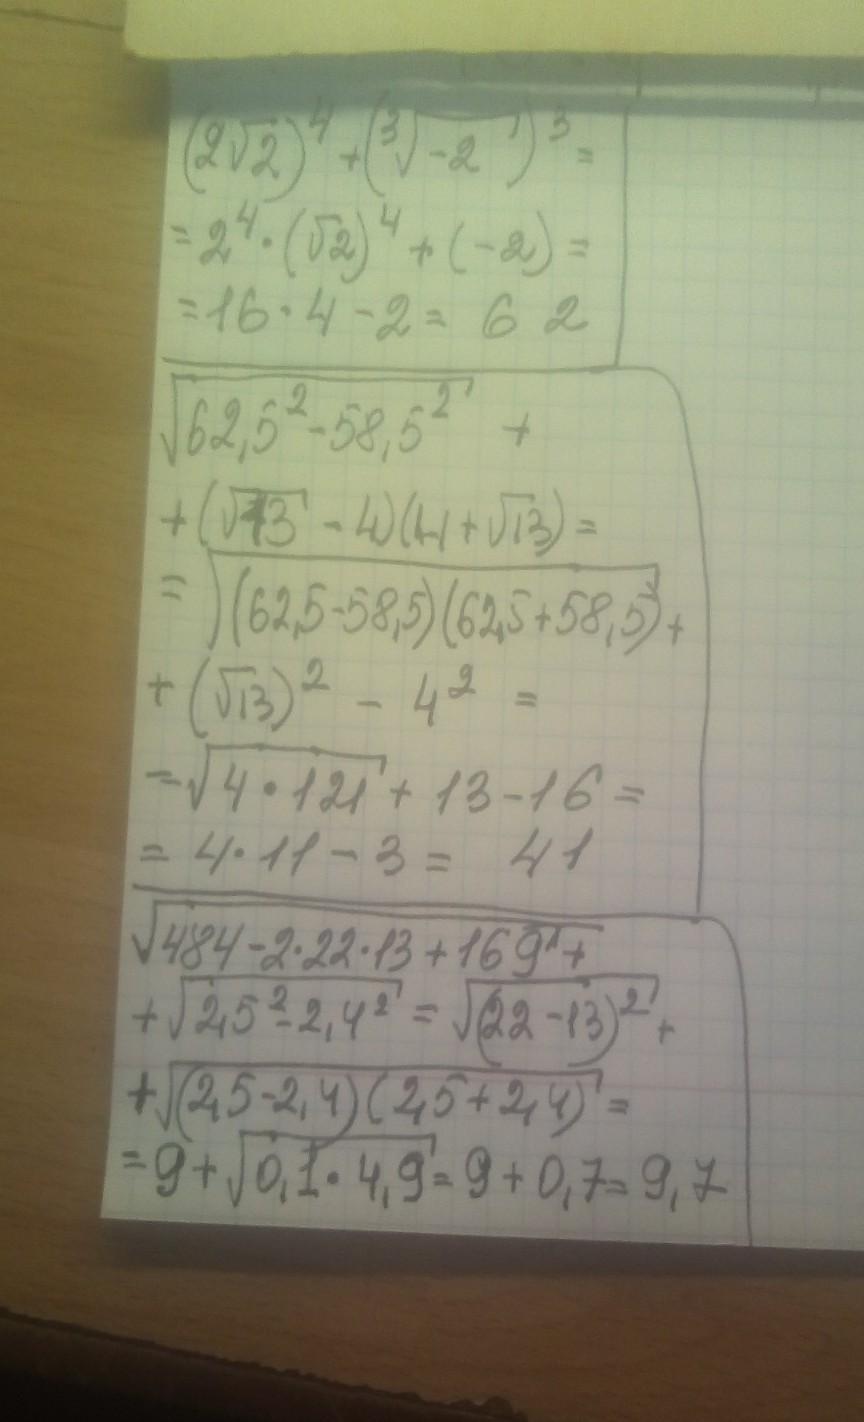 (2√2)⁴ + (³√-2)³ =
= 2⁴·(√2)⁴ + (-2) =
= 16·4 - 2 = 62
√62,5² - 58,5² +
+ (√13 - 4)(4 + √13) =
= √(62,5-58,5)(62,5+58,5) +
+ (√13)² - 4² =
= √4·121 + 13 - 16 =
= 4·11 - 3 = 41
√484 - 2·22·13 + 169 +
+ √2,5² - 2,4² = √(22-13)² +
+ √(2,5-2,4)(2,5+2,4) =
= 9 + √0,1·4,9 = 9 + 0,7 = 9,7